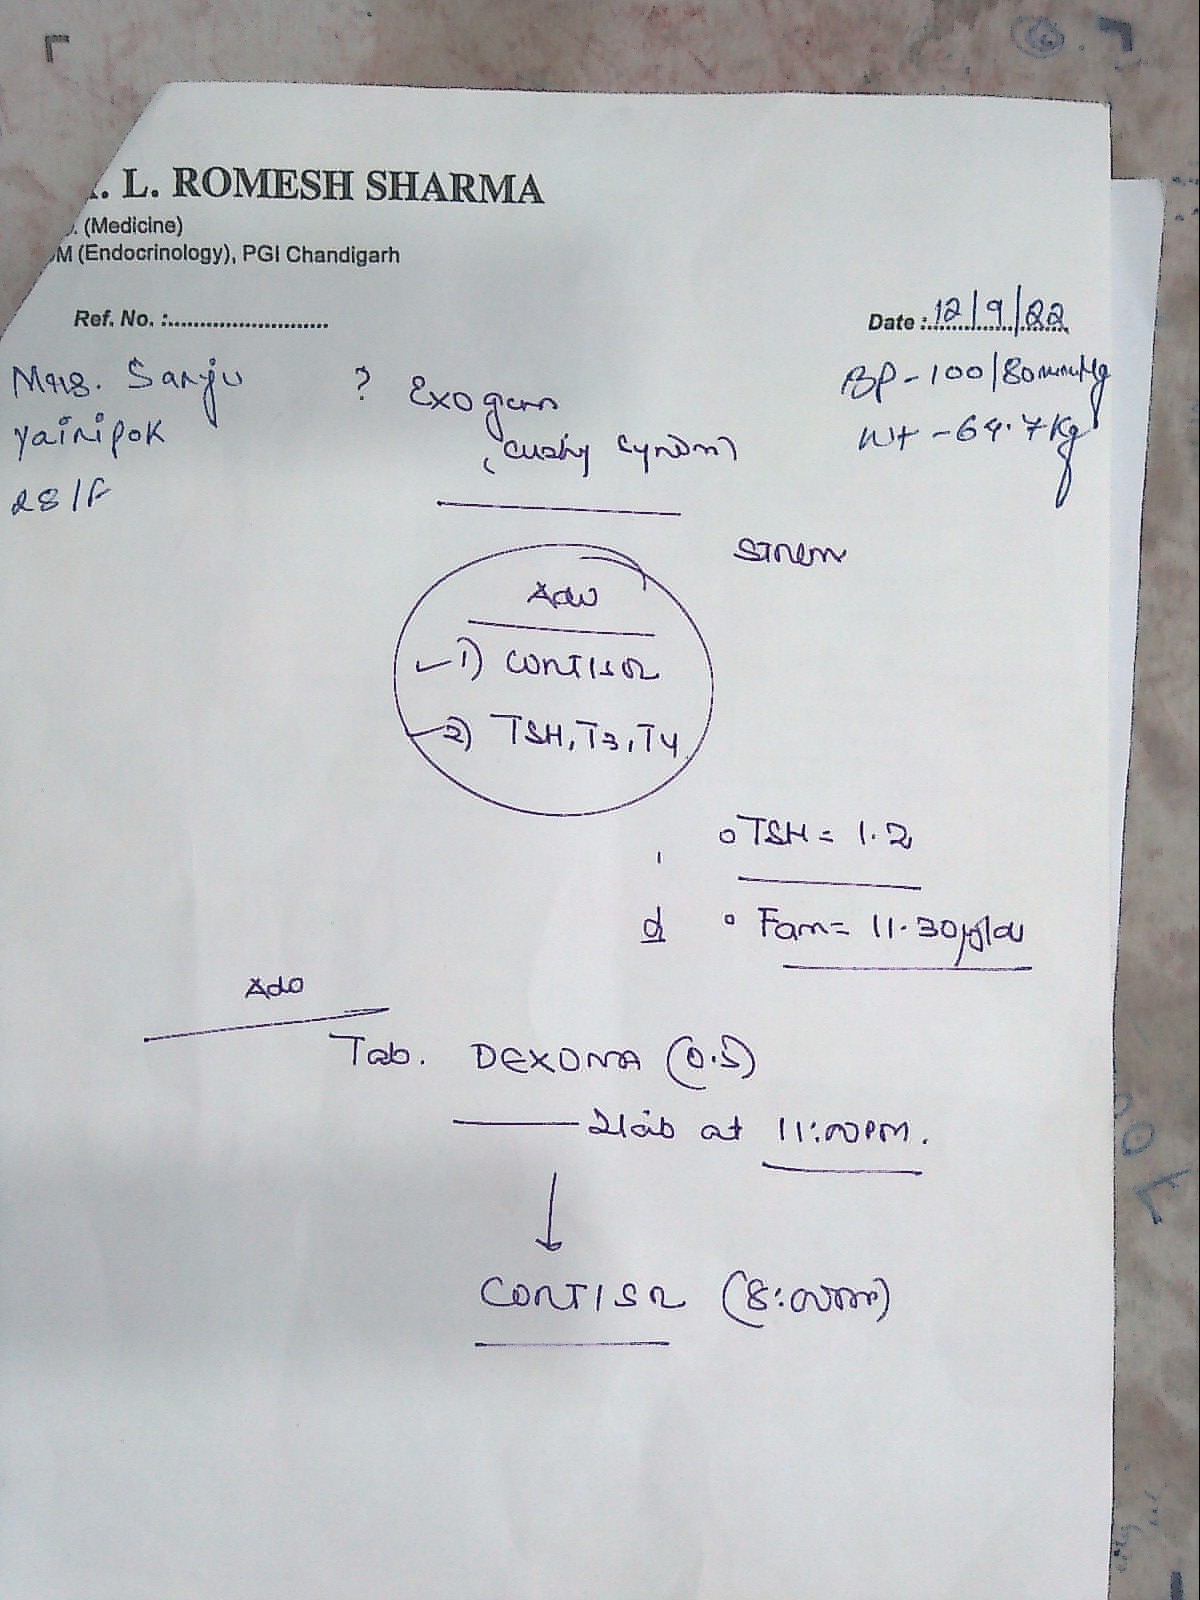 . L. ROMESH SHARMA
. (Medicine)
M (Endocrinology), PGI Chandigarh
Ref. No. :..........................
Date : 12/9/22
Mrs. Sanju
Yairipok
28/F
? Exogenous
Cushing Syndrome
BP - 100/80 mmHg
Wt - 64.7 Kg
Adv
1) CORTISOL
2) TSH, T3, T4
TSH = 1.2
= 11.30 µg/dl
Adv
Tab. DEXONA (0.5)
2 tab at 11:00 PM.
↓
CORTISOL (8:00 am)